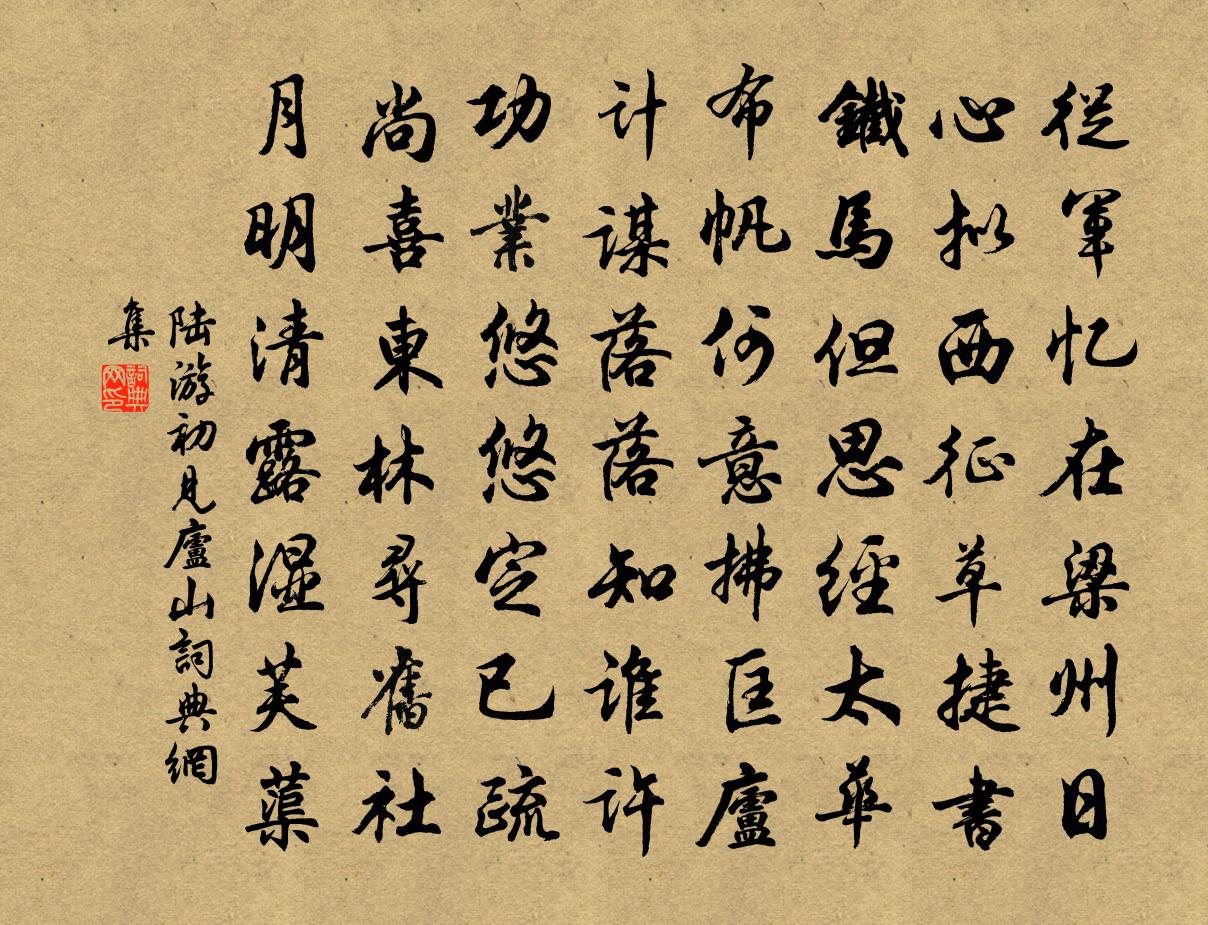 從軍忆在梁州日
心拟西征草捷書
鐵馬但思經太華
布帆何意拂匡廬
计謀落落知谁许
功業悠悠定已疏
尚喜東林尋舊社
月明清露湿芙蕖
陆游初見廬山詞典網
集
詞典网印